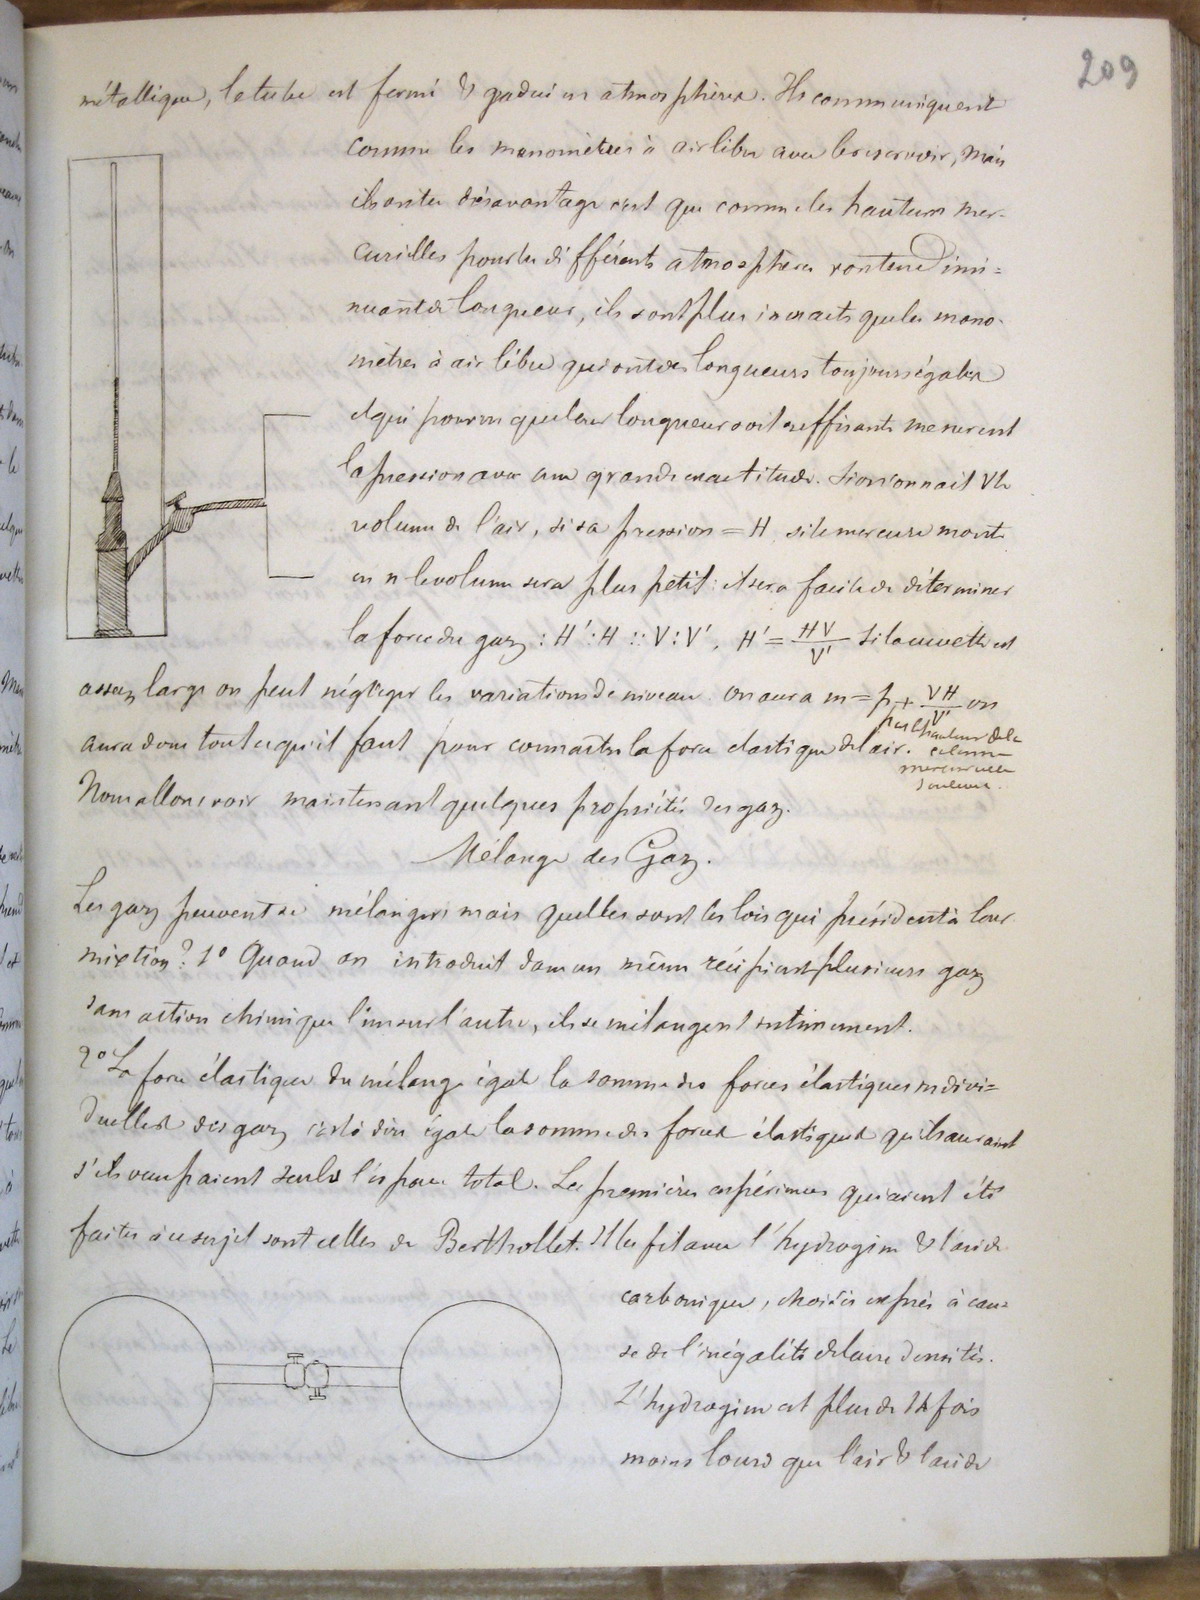 209
métallique, le tube est fermé & gradué en atmosphères. Ils communiquent
comme les manomètres à air libre avec le reservoir, mais
ils ont ce désavantage c'est que comme les hauteurs mer-
curielles pour les différents atmosphères vont en dimi=
nuant de longueur, ils sont plus inexacts que les mano-
mètres à air libre qui ont des longueurs toujours égales
et qui pourvu que leur longueur soit suffisante mesurent
la pression avec une grande exactitude. Si on connait V le
volume de l'air, si sa pression = H si le mercure monte
en n le volume sera plus petit: il sera facile de déterminer
la force du gaz : H' : H :: V : V', H' = HV/V' Si la cuvette est
assez large on peut négliger les variations de niveau. On aura m = p + VH/V' on
aura donc tout ce qu'il faut pour connaitre la force élastique de l'air.
p est hauteur de la
colonne
mercurielle
soulevée.
Nous allons voir maintenant quelques propriétés des gaz.
Mélange des Gaz.
Les gaz peuvent se mélanger mais quelles sont les lois qui président à leur
mixtion? 1° Quand on introduit dans un même récipient plusieurs gaz
sans action chimique l'un sur l'autre, ils se mélangent intimement.
2° La force élastique du mélange égale la somme des forces élastiques indivi=
duelles des gaz c'est à dire égale la somme des forces élastiques qu'ils auraient
s'ils occupaient seuls l'espace total. Les premières expériences qui aient été
faites à ce sujet sont celles de Berthollet. Il les fit avec l'hydrogène & l'acide
carbonique, choisis exprès à cau=
se de l'inégalité de leurs densités.
L'hydrogène est plus de 14 fois
moins lourd que l'air & l'acide